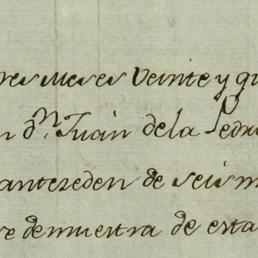 res meses Veinte y qu
n dn. Juan dela Pedr
anteceden de seis m
re demuestra de esta